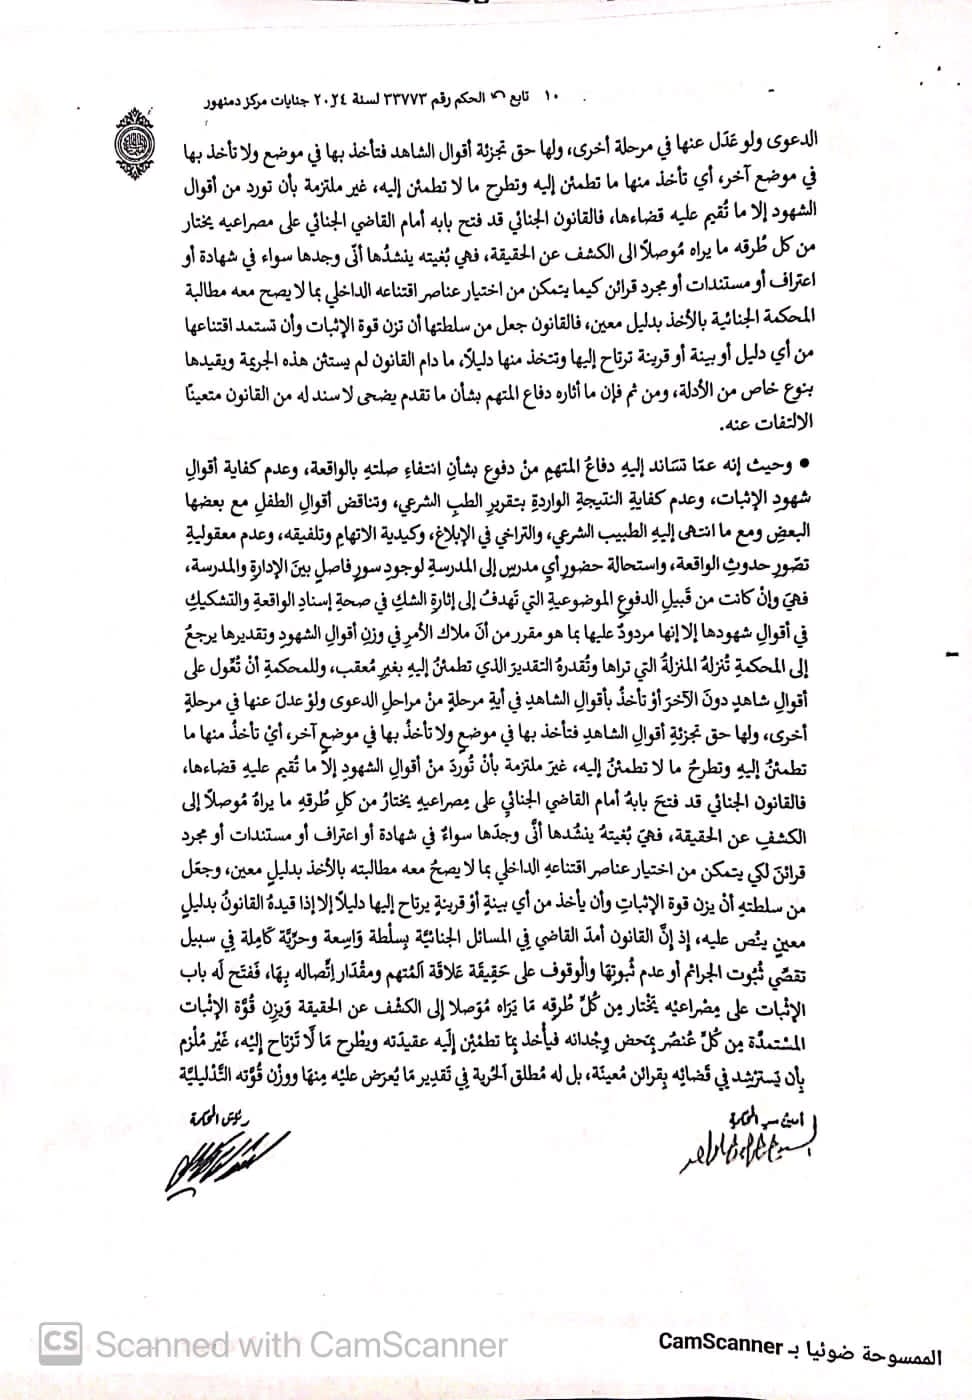 ١٠ تابع الحكم رقم ٣٣٧٧٣ لسنة ٢٠٢٤ جنايات مركز دمنهور
الدعوى ولو عَدَل عنها في مرحلة أخرى، ولها حق تجزئة أقوال الشاهد فتأخذ بها في موضع ولا تأخذ بها
في موضع آخر، أي تأخذ منها ما تطمئن إليه وتطرح ما لا تطمئن إليه، غير ملتزمة بأن تورد من أقوال
الشهود إلا ما تُقيم عليه قضاءها، فالقانون الجنائي قد فتح بابه أمام القاضي الجنائي على مصراعيه يختار
من كل طُرقه ما يراه مُوصلاً الى الكشف عن الحقيقة، فهي بُغيته ينشدُها أنّى وجدها سواء في شهادة أو
اعتراف أو مستندات أو مجرد قرائن كيما يتمكن من اختيار عناصر اقتناعه الداخلي بما لا يصح معه مطالبة
المحكمة الجنائية بالأخذ بدليل معين، فالقانون جعل من سلطتها أن تزن قوة الإثبات وأن تستمد اقتناعها
من أي دليل أو بينة أو قرينة ترتاح إليها وتتخذ منها دليلاً، ما دام القانون لم يستثن هذه الجريمة ويقيدها
بنوع خاص من الأدلة، ومن ثم فإن ما أثاره دفاع المتهم بشأن ما تقدم يضحى لا سند له من القانون متعينًا
الالتفات عنه.
• وحيث إنه عمّا تسَاند إليهِ دفاعُ المتهمِ منْ دفوع بشأنِ انتفاءِ صلتهِ بالواقعة، وعدم كفاية أقوالِ
شهودِ الإثبات، وعدم كفايةِ النتيجةِ الواردةِ بتقريرِ الطبِ الشرعي، وتناقض أقوالِ الطفلِ مع بعضها
البعضِ ومع ما انتهى إليهِ الطبيب الشرعي، والتراخي في الإبلاغ، وكيدية الاتهامِ وتلفيقه، وعدم معقوليةِ
تصّورِ حدوثِ الواقعة، واستحالة حضورِ أي مدرسٍ إلى المدرسةِ لوجودِ سورٍ فاصلٍ بينَ الإدارةِ والمدرسة،
فهيَ وإنْ كانت من قَبيلِ الدفوعِ الموضوعيةِ التي تَهدفُ إلى إثارةِ الشكِ في صحةِ إسنادِ الواقعةِ والتشكيكِ
في أقوالِ شهودها إلا إنها مردودٌ عليها بما هو مقرر من أنَ ملاك الأمرِ في وزنِ أقوال الشهودِ وتقديرها يرجعُ
إلى المحكمةِ تُنزلهُ المنزلةُ التي تراها وتُقدرهُ التقديرَ الذي تطمئنُ إليهِ بغيرِ مُعقب، وللمحكمةِ أنْ تُعّول على
أقوالِ شاهدٍ دونَ الآخرَ أوْ تأخذُ بأقوالِ الشاهدِ في أيةِ مرحلةٍ منْ مراحلِ الدعوى ولوْ عدلَ عنها في مرحلةٍ
أخرى، ولها حق تجزئةِ أقوال الشاهدِ فتأخذ بها في موضعٍ ولا تأخذُ بها في موضعٍ آخر، أيْ تأخذُ منها ما
تطمئنُ إليهِ وتطرحُ ما لا تطمئنُ إليه، غيرَ ملتزمة بأنْ تُوردَ منْ أقوالِ الشهودِ إلاّ ما تُقيم عليهِ قضاءها،
فالقانون الجنائي قد فتحَ بابهُ أمام القاضي الجنائي على مِصراعيهِ يختارُ من كلِ طُرقهِ ما يراهُ مُوصلاً إلى
الكشفِ عن الحقيقة، فهيَ بُغيتهُ ينشُدها أنَّى وجدَها سواءً في شهادة أو اعتراف أو مستندات أو مجرد
قرائنَ لكي يتمكن من اختيار عناصر اقتناعهِ الداخلي بما لا يصحُ معه مطالبته بالأخذ بدليلٍ معين، وجعَل
من سلطتهِ أنْ يزن قوة الإثباتِ وأن يأخذ من أي بينةٍ أوْ قرينةٍ يرتاح إليها دليلاً إلا إذا قيدهُ القانونُ بدليلٍ
معينٍ ينُص عليه، إذ إنَّ القانون أمدَ القاضي في المسائل الجنائيَّة بِسلْطة وَاسِعة وحرّيَّة كَامِلة فِي سبيل
تقصِّي ثُبُوت الجرائم أو عدم ثُبوتِهَا والْوقوف على حَقِيقَة عَلاقَة اَلمُتهم ومقْدَار اِتِّصاله بِهَا، فَفتَح لَه باب
الإثْبات على مِصْراعيْه يَخْتار مِن كُلِّ طُرقِه مَا يَرَاه مُوَصلا إلى الكشْف عن الحقيقة وَيزِن قُوَّة الإثْبات
المسْتمدَّة مِن كُلِّ عُنصُر بِمَحض وِجْدانه فيأْخذ بِمَا تطمْئِن إِلَيه عقيدَته ويطْرح مَا لَا تَرْتاح إِلَيْه، غَيْر مُلْزم
بِأن يَسترْشِد فِي قَضائِه بِقرائن مُعينَة، بل له مُطلق اَلحُرية فِي تَقدِير مَا يُعرَض عليْه مِنهَا ووزْن قُوَّته التَّدْليليَّة
أمين سر المحكمة
رئيس المحكمة
CS Scanned with CamScanner
الممسوحة ضوئيا بـ CamScanner